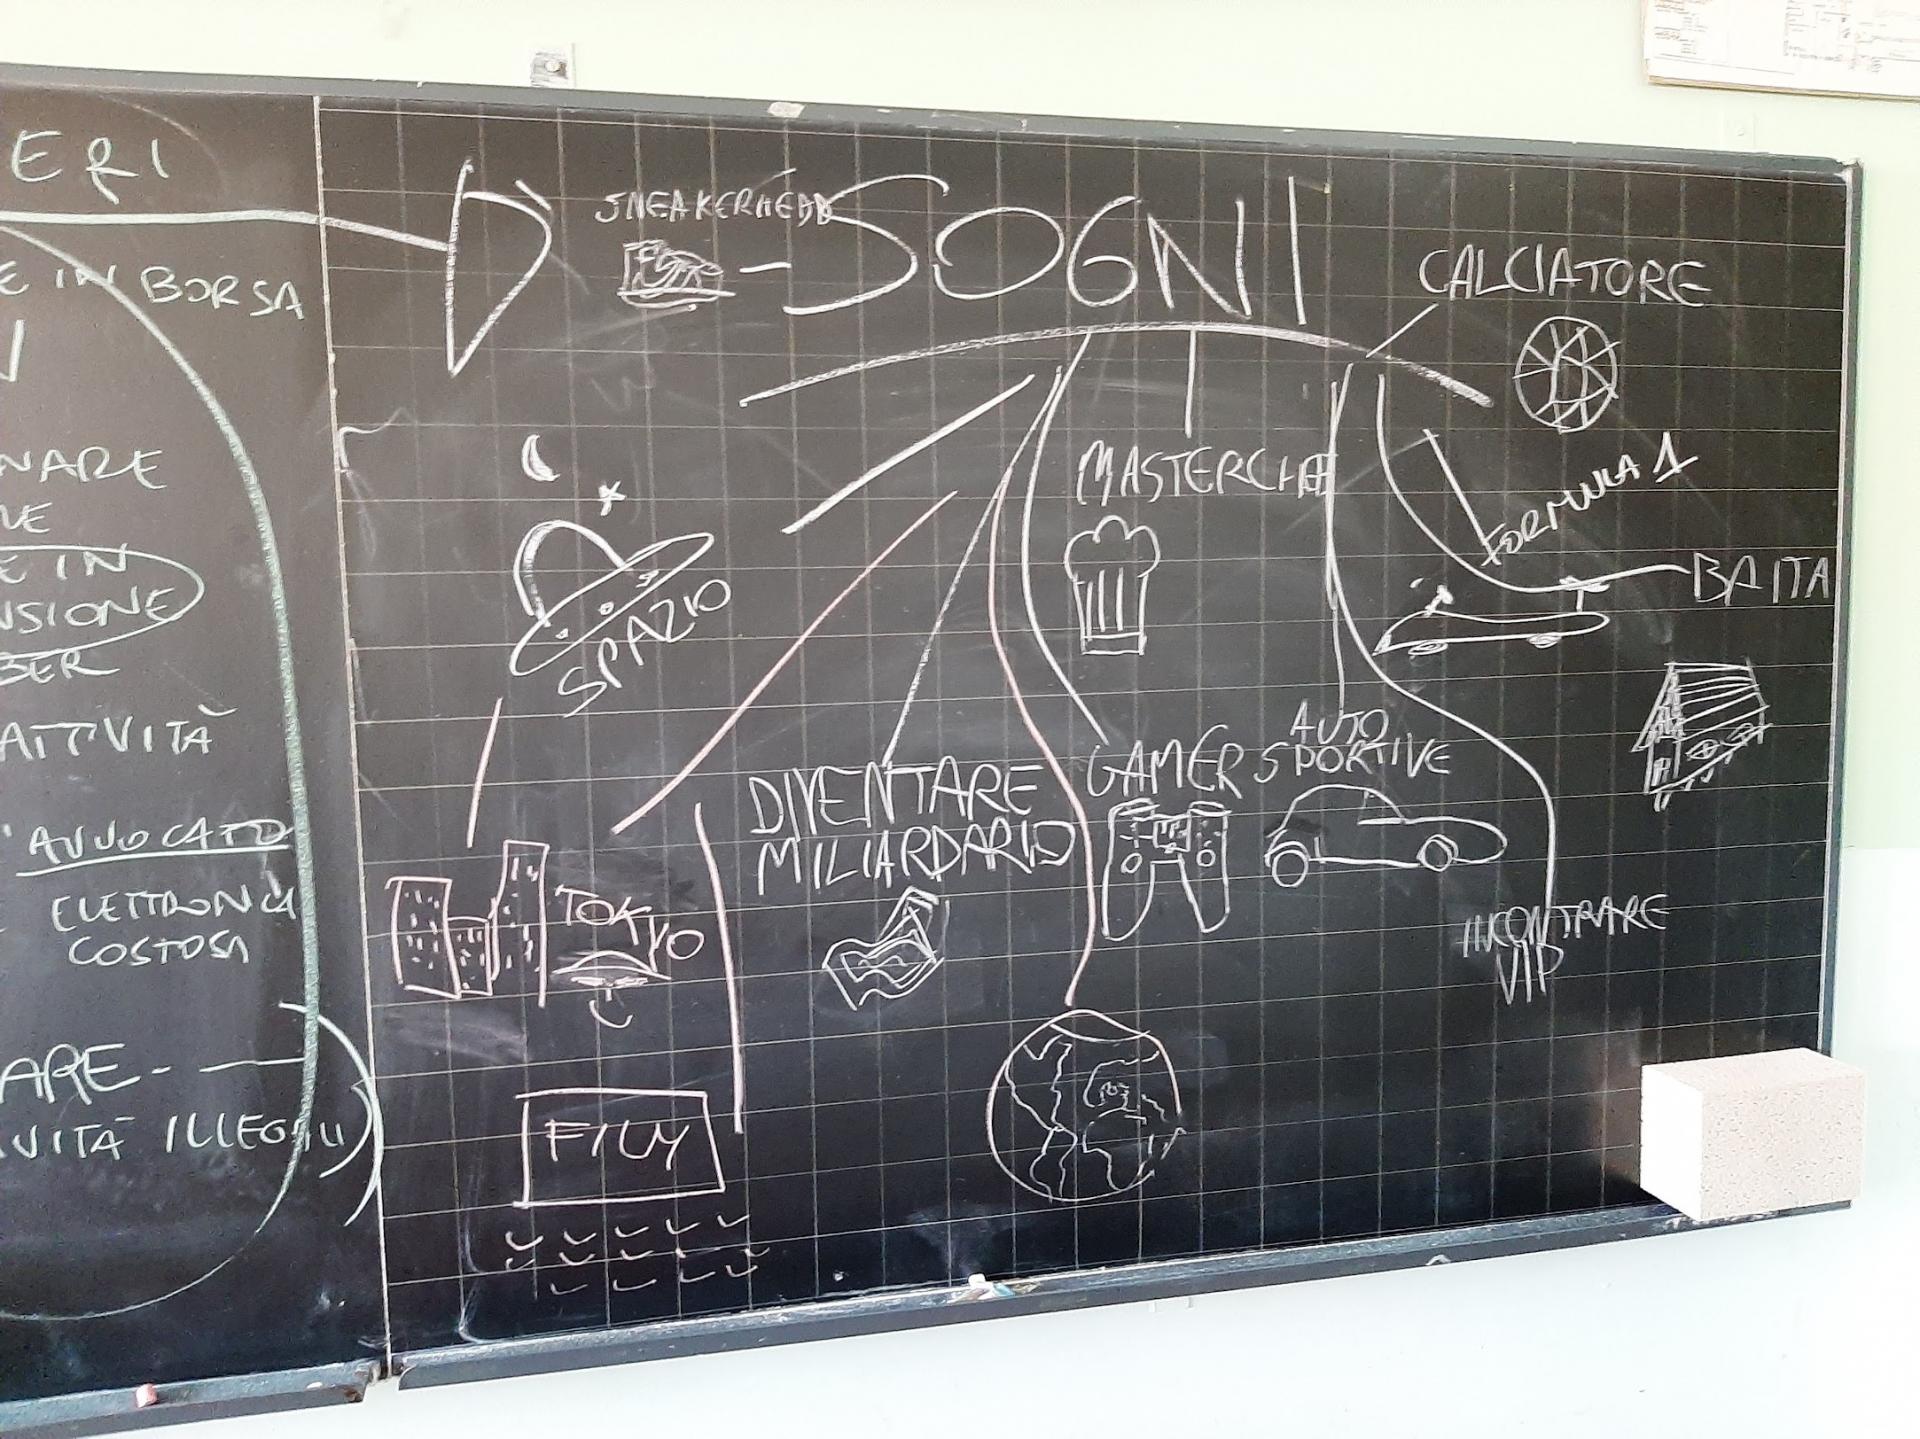 ERI
E IN BORSA
NARE
E IN
NSIONE
BER
ATTIVITÀ
AVVOCATO
ELETTRONICA
COSTOSA
ARE
VITÀ ILLEGALI
SNEAKERHEAD
SOGNI
CALCIATORE
MASTERCHEF
FORMULA 1
BAITA
SPAZIO
AUTO
SPORTIVE
GAMER
DIVENTARE
MILIARDARIO
TOKYO
INCONTRARE
VIP